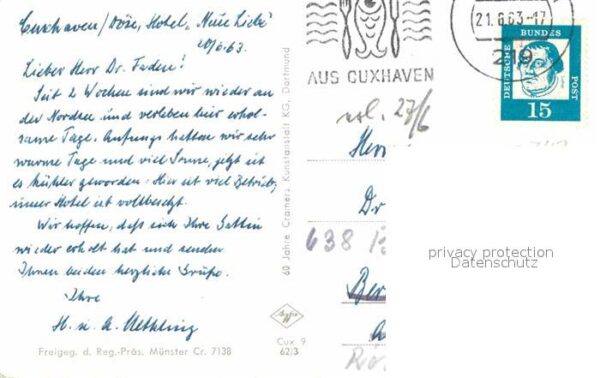 Cuxhaven/Döse, Hotel „Neue Liebe"
20/6.63.
Lieber Herr Dr. Faden!
Seit 2 Wochen sind wir wieder an
der Nordsee und verleben hier erhol-
same Tage. Anfangs hatten wir sehr
warme Tage und viel Sonne, jetzt ist
es kühler geworden. Hier ist viel Betrieb,
unser Hotel ist vollbesetzt.
Wir hoffen, daß sich Ihre Gattin
wieder erholt hat und senden
Ihnen beiden herzliche Grüße.
Ihre
H. u. A.
Freigeg. d. Reg.-Präs. Münster Cr. 7138
60 Jahre Cramers Kunstanstalt KG, Dortmund
Agfa
Cux 9
62/3
AUS CUXHAVEN
21.6.63-17
219
DEUTSCHE BUNDESPOST
15
erl. 27/6
Herr
Dr
638
Ber
privacy protection
Datenschutz